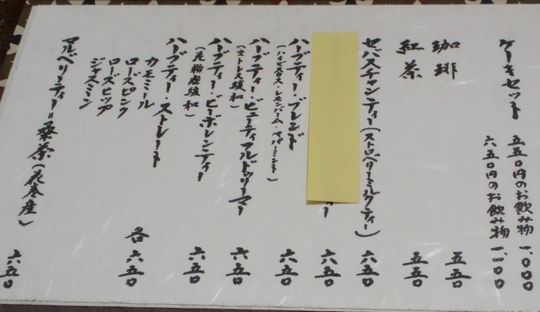 ケーキセット
五五〇円のお飲み物 一、〇〇〇
六五〇円のお飲み物 一、一〇〇
珈琲 五五〇
紅茶 五五〇
セバスチャンティー(ストロベリーミルクティー) 六五〇
ー 六五〇
ハーブティー・ブレンド 六五〇
(ハイビスカス・レモンバーム・ペパーミント)
ハーブティー・ビューティフルドリーマー 六五〇
(ストレス緩和)
ハーブティー・ビーポレンティー 六五〇
(花粉症緩和)
ハーブティー・ストレート
カモミール
ローズピンク 各六五〇
ローズヒップ
ジャスミン
マルベリーティー=桑茶(花巻産) 六五〇